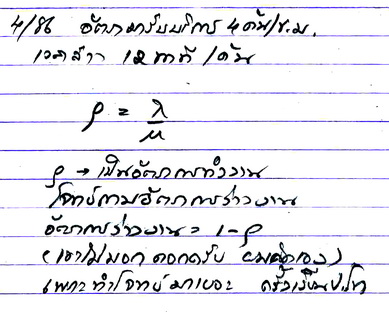 4/86 อัตราการรับบริการ 4 คัน/ช.ม.
เวลาล้าง 12 นาที /คัน
ρ = λ/μ
ρ → เป็นอัตราการทำงาน
โจทย์ถามอัตราการว่างงาน
อัตราการว่างงาน = 1-ρ
(เขาไม่บอก ดอกครับ ผมคิดเอง)
เพราะทำโจทย์มาเยอะ